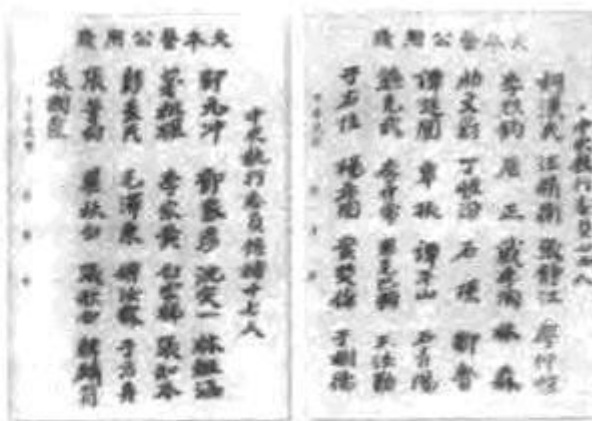 大本營公用牋
中央執行委員二十四人
胡漢民 汪精衛 張靜江 廖仲愷
李烈鈞 居正 戴季陶 林森
柏文蔚 丁惟汾 石瑛 鄒魯
譚延闓 覃振 譚平山 石青陽
熊克武 李守常 恩克巴圖 王法勤
于右任 楊希閔 葉楚傖 于樹德
大本營公用牋
中央執行委員候補十七人
邵元冲 鄧家彥 沈定一 林祖涵
茅祖權 李宗黃 白雲梯 張知本
彭素民 毛澤東 傅汝霖 于方舟
張葦村 瞿秋白 張秋白 韓麟符
張國燾